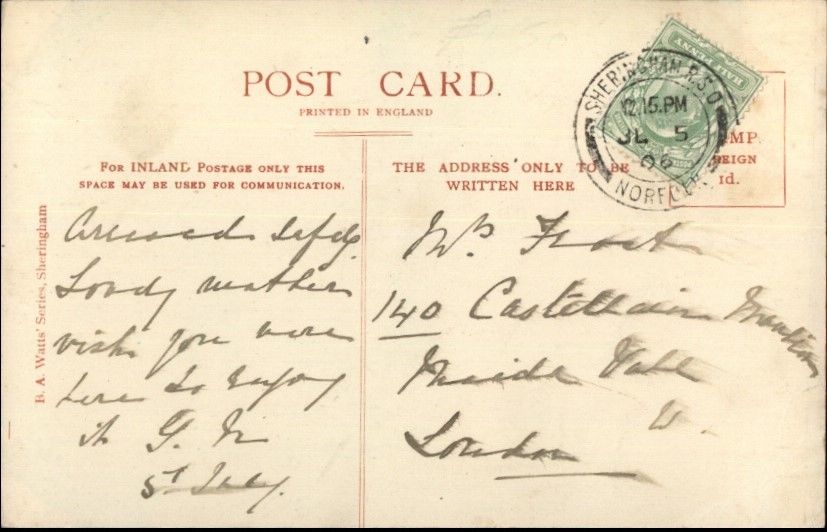 POST CARD.
PRINTED IN ENGLAND
HALF PENNY
SHERINGHAM R.S.O
12.15.PM
JL 5
06
NORFOLK
MP
REIGN
1d.
FOR INLAND POSTAGE ONLY THIS
SPACE MAY BE USED FOR COMMUNICATION.
THE ADDRESS ONLY TO BE
WRITTEN HERE
B. A. Watts' Series, Sheringham
Arrived safely.
Lovely weather
wish you were
here to enjoy
it G. M
5th July.
Mrs Frost
140 Castellain Mansions
Maida Vale
W.
London